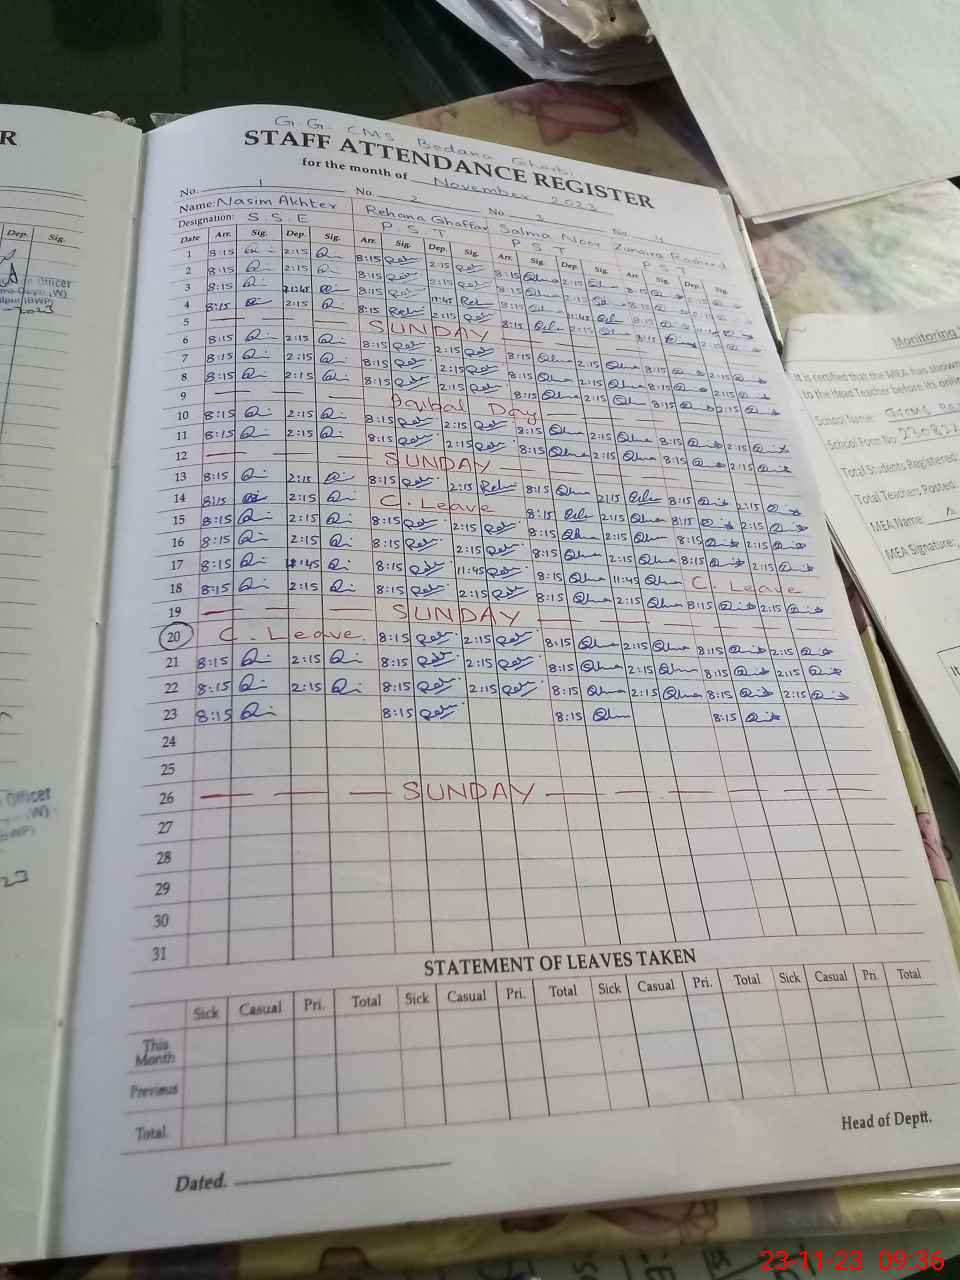 G.G. CMS Bedana Gharbi
STAFF ATTENDANCE REGISTER
for the month of November 2023
No. 1 No. 2 No 3 No. 4
Name: Nasim Akhter Rehana Ghaffar Salma Noor Zunaira Rasheed
Designation: S.S.E P.S.T P.S.T P.S.T
Date Arr. Sig. Dep. Sig. Arr. Sig. Dep. Sig. Arr. Sig. Dep Sig. Arr. Sig. Dep. Sig.
1 8:15 2:15 8:15 2:15 8:15 2:15 8:15 2:15
2 8:15 2:15 8:15 2:15 8:15 2:15 8:15 2:15
3 8:15 11:45 8:15 11:45 8:15 11:45 8:15
4 8:15 2:15 8:15 2:15 8:15 2:15 8:15 2:15
5 SUNDAY
6 8:15 2:15 8:15 2:15 8:15 2:15 8:15 2:15
7 8:15 2:15 8:15 2:15 8:15 2:15 8:15 2:15
8 8:15 2:15 8:15 2:15 8:15 2:15 8:15 2:15
9 Iqbal Day
10 8:15 2:15 8:15 2:15 8:15 2:15 8:15 2:15
11 8:15 2:15 8:15 2:15 8:15 2:15 8:15 2:15
12 SUNDAY
13 8:15 2:15 8:15 2:15 8:15 2:15 8:15 2:15
14 8:15 2:15 C. Leave 8:15 2:15 8:15 2:15
15 8:15 2:15 8:15 2:15 8:15 2:15 8:15 2:15
16 8:15 2:15 8:15 2:15 8:15 2:15 8:15 2:15
17 8:15 11:45 8:15 11:45 8:15 11:45 C. Leave
18 8:15 2:15 8:15 2:15 8:15 2:15 8:15 2:15
19 SUNDAY
20 C. Leave. 8:15 2:15 8:15 2:15 8:15 2:15
21 8:15 2:15 8:15 2:15 8:15 2:15 8:15 2:15
22 8:15 2:15 8:15 2:15 8:15 2:15 8:15 2:15
23 8:15 8:15 8:15 8:15
24
25
26 SUNDAY
27
28
29
30
31
STATEMENT OF LEAVES TAKEN
Sick Casual Pri. Total Sick Casual Pri. Total Sick Casual Pri. Total Sick Casual Pri. Total
This Month
Previous
Total
Head of Deptt.
Dated.
R
Dep. Sig.
Officer
Officer
(BWP)
23
Monitoring
It is certified that the MEA has shown
to the Head Teacher before its online
School Name:
School Form No:
Total Students Registered:
Total Teachers Posted:
MEA Name:
MEA Signature:
23-11-23 09:36